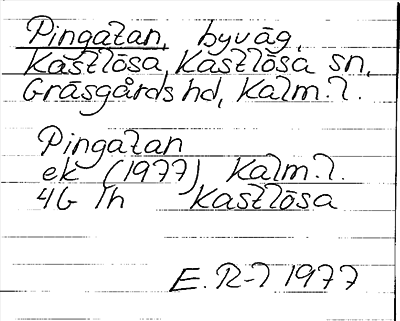 Pingatan, byväg,
Kastlösa, Kastlösa sn,
Gräsgårds hd, Kalm. l.
Pingatan
ek (1977) Kalm. l.
4G 1h Kastlösa
E. R-l 1977